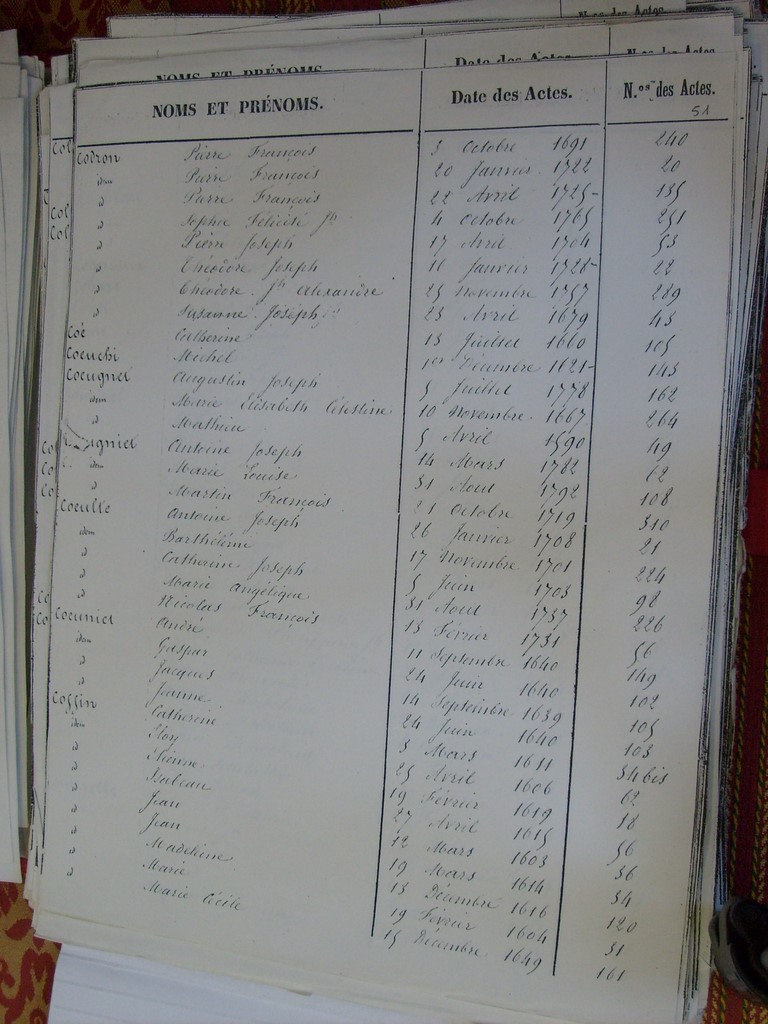 N.os des Actes.
NOMS ET PRÉNOMS. Date des Actes. N.os des Actes.
NOMS ET PRÉNOMS. Date des Actes. N.os des Actes.
51
Codron Pierre François 3 Octobre 1691 240
idem Pierre François 20 Janvier 1722 20
d Pierre François 22 Avril 1725 135
d Sophie Félicité Jh 4 Octobre 1765 251
d Pierre Joseph 17 Avril 1704 53
d Théodore Joseph 16 Janvier 1728 22
d Théodore Jh Alexandre 25 Novembre 1757 289
d Susanne Joseph 23 Avril 1679 43
Coé Catherine 13 Juillet 1660 105
Coeuchi Michel 1er Décembre 1621 143
Coeugnet Augustin Joseph 5 Juillet 1778 162
idem Marie Elisabeth Célestine 10 Novembre 1667 264
d Mathieu 5 Avril 1590 49
Coeugniet Antoine Joseph 14 Mars 1782 62
idem Marie Louise 31 Aout 1792 108
d Martin François 21 Octobre 1719 310
Coeulle Antoine Joseph 26 Janvier 1708 21
idem Barthélémi 17 Novembre 1701 224
d Catherine Joseph 5 Juin 1703 92
d Marie Angélique 31 Aout 1737 226
d Nicolas François 13 Février 1731 56
Coeuniet André 11 Septembre 1640 149
idem Gaspar 24 Juin 1640 102
d Jacques 14 Septembre 1639 105
d Jeanne 24 Juin 1640 103
Coffin Catherine 3 Mars 1611 34 bis
idem Eloy 25 Avril 1606 62
d Etienne 19 Février 1619 18
d Isabeau 27 Avril 1615 56
d Jean 12 Mars 1603 36
d Jean 19 Mars 1614 34
d Madeleine 13 Décembre 1616 120
d Marie 19 Février 1604 31
d Marie Cécile 15 Décembre 1649 161